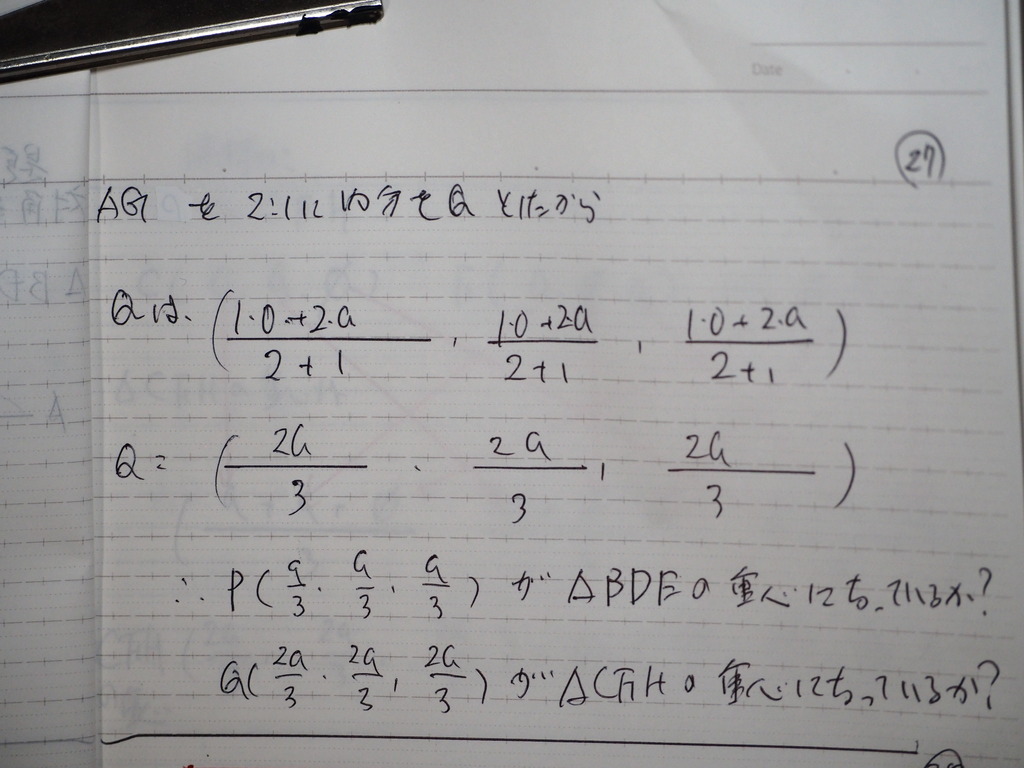 Date
27
AGを2:1に内分をQとしたから
Qは、(1・0+2・a/2+1, 1・0+2a/2+1, 1・0+2・a/2+1)
Q=(2a/3, 2a/3, 2a/3)
∴P(a/3, a/3, a/3)が△BDEの重心になっているか?
Q(2a/3, 2a/3, 2a/3)が△CFHの重心になっているか?